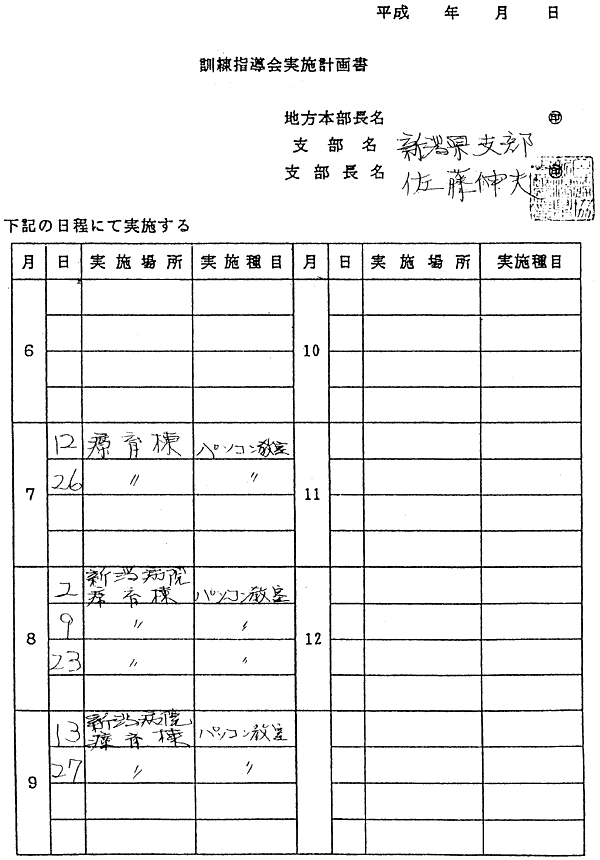 平成　年　月　日
訓練指導会実施計画書
地方本部長名　㊞
支部名　新潟県支部
支部長名　佐藤伸夫　㊞
下記の日程にて実施する
月　日　実施場所　実施種目　月　日　実施場所　実施種目
6　10
12　療育棟　パソコン教室
26　〃　〃
7　11
新潟病院
2　療育棟　パソコン教室
9　〃　〃
8　12
23　〃　〃
新潟病院
13　療育棟　パソコン教室
27　〃　〃
9